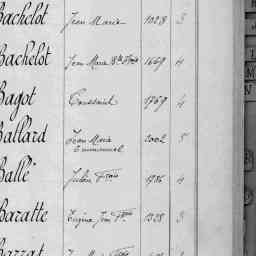 Bachelot Jean Marie 1028 3
Bachelot Jean Marie Bte Frois 1669 4
Bagot Toussaint 1769 4
Ballard Jean Marie Emmanuel 2002 5
Ballé Julien Frois 1786 4
Baratte Eugène Jean 1328 3